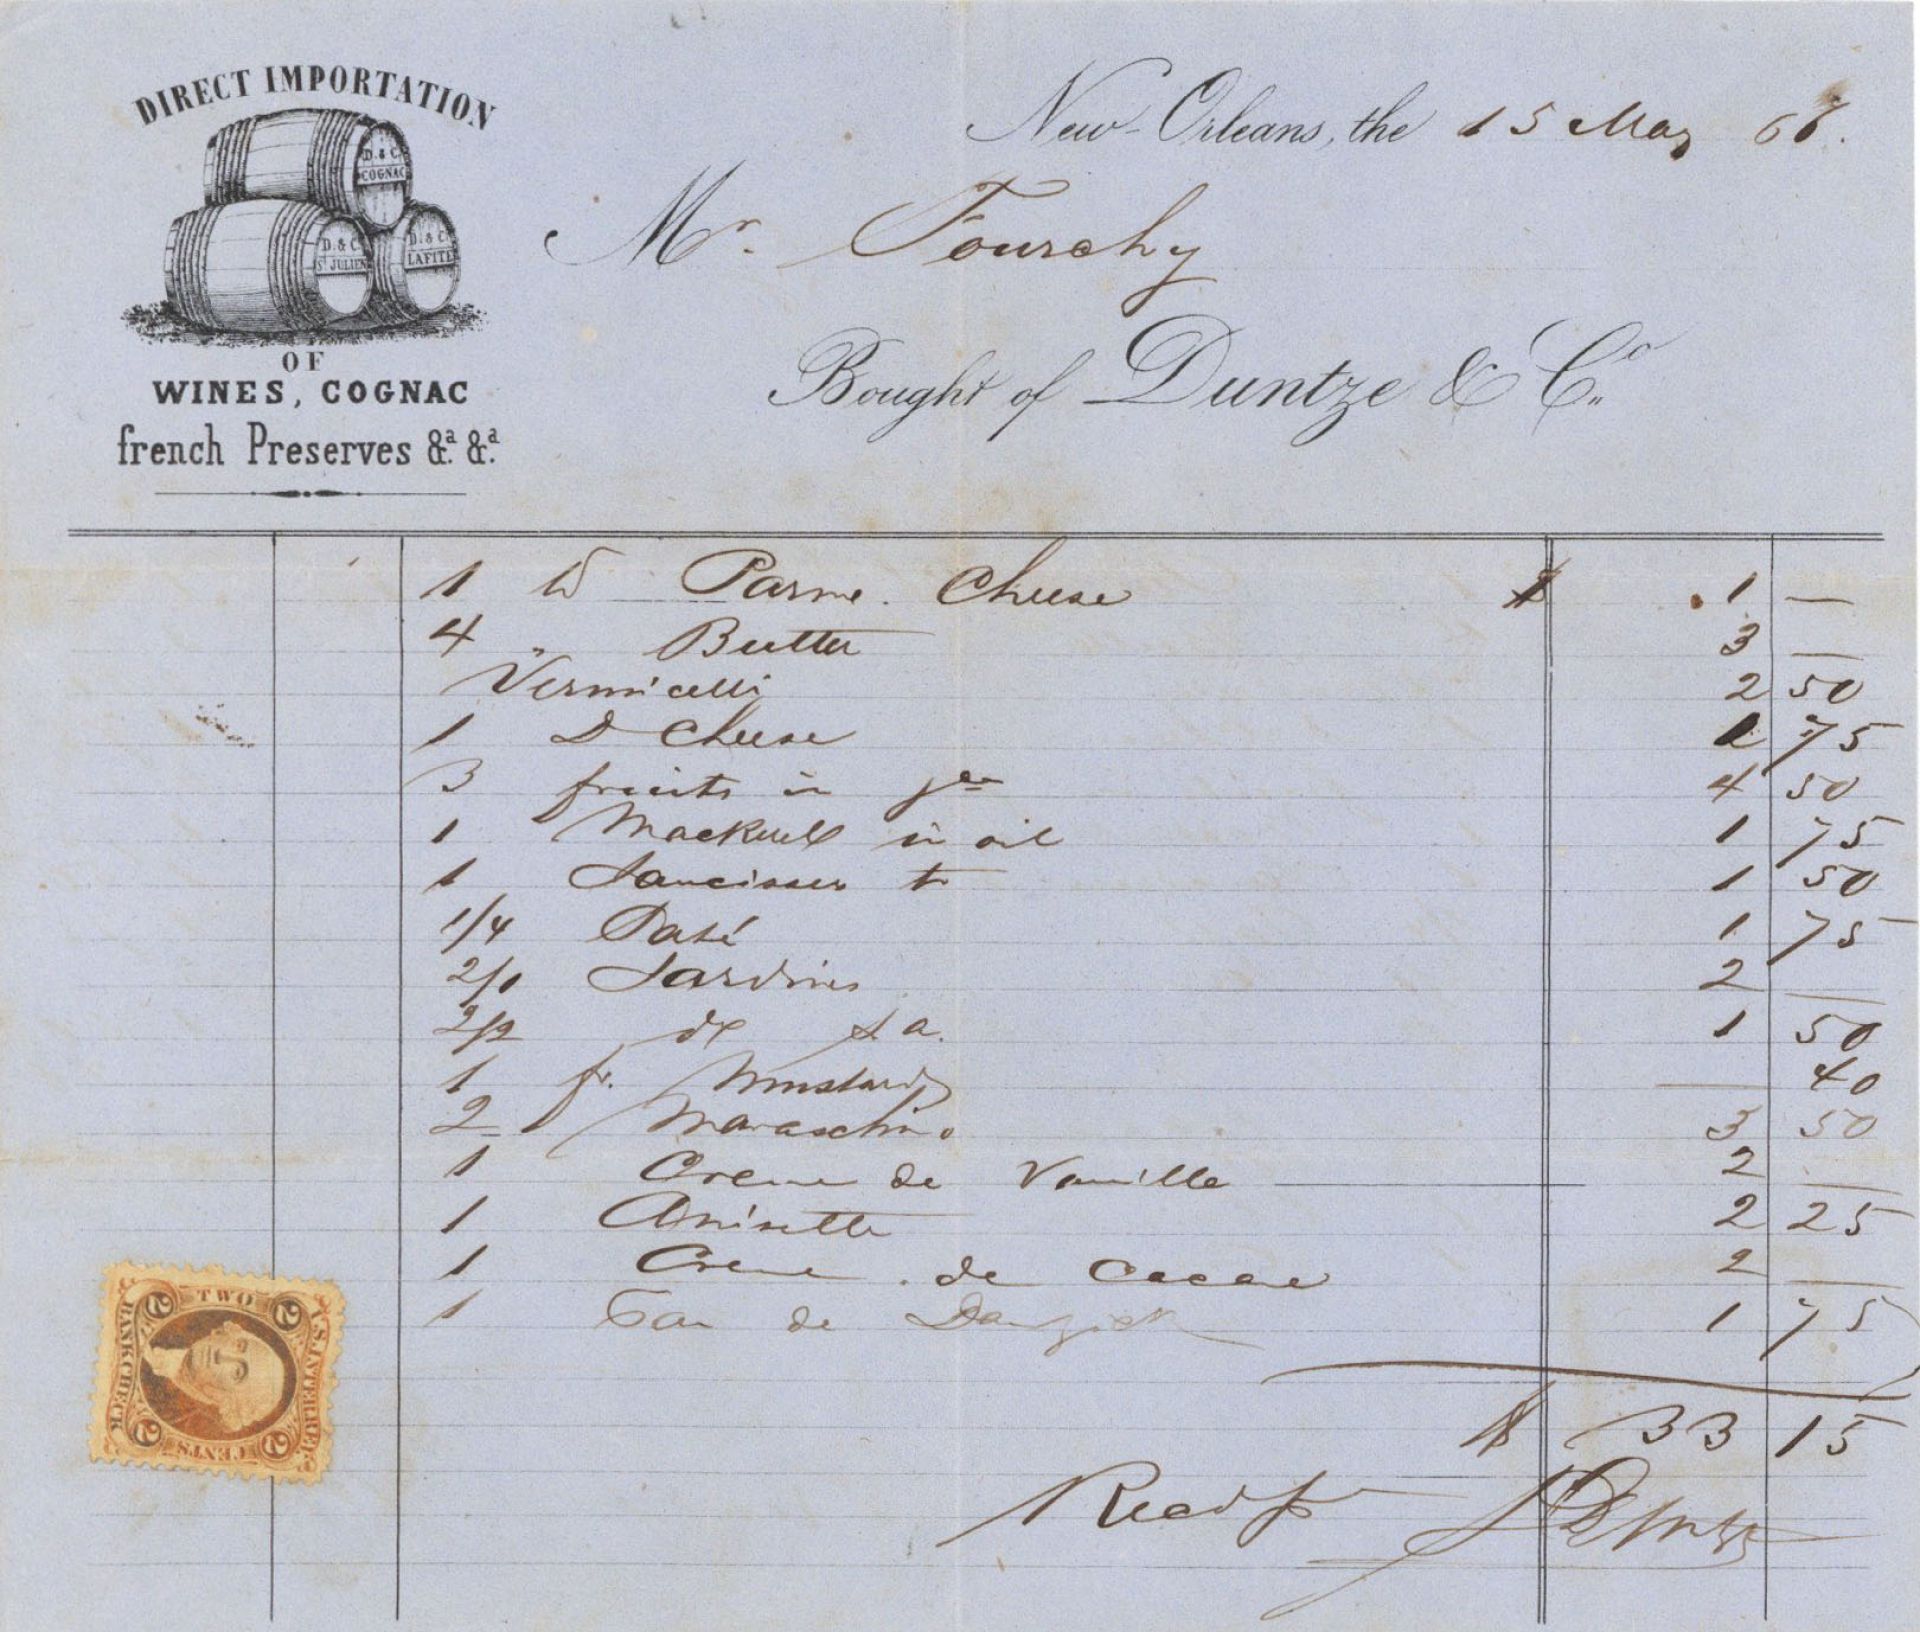 DIRECT IMPORTATION
D. & C. COGNAC
D. & C. St JULIEN
D. & C. LAFITE
OF
WINES, COGNAC
french Preserves &a. &a.
New-Orleans, the 15 May 68.
Mr. Fourchy
Bought of Duntze & Co.
1 lb Parme. Cheese $ 1 —
4 " Butter 3 —
Vermicelli 2 50
1 D Cheese 1 75
3 fruits in 4 50
1 Mackerel in oil 1 75
1 Saucisses 1 50
1/4 Paté 1 75
2/1 Sardines 2 —
2/2 do 1 50
1 fr. Mustard — 40
2 Maraschino 3 50
1 Creme de Vanille 2 —
1 Anisette 2 25
1 Creme de Cacao 2 —
1 Eau de Danzick 1 75
$ 33 15
Recd pt
U.S. INTER. REV.
TWO CENTS
BANK CHECK
2 2 2 2